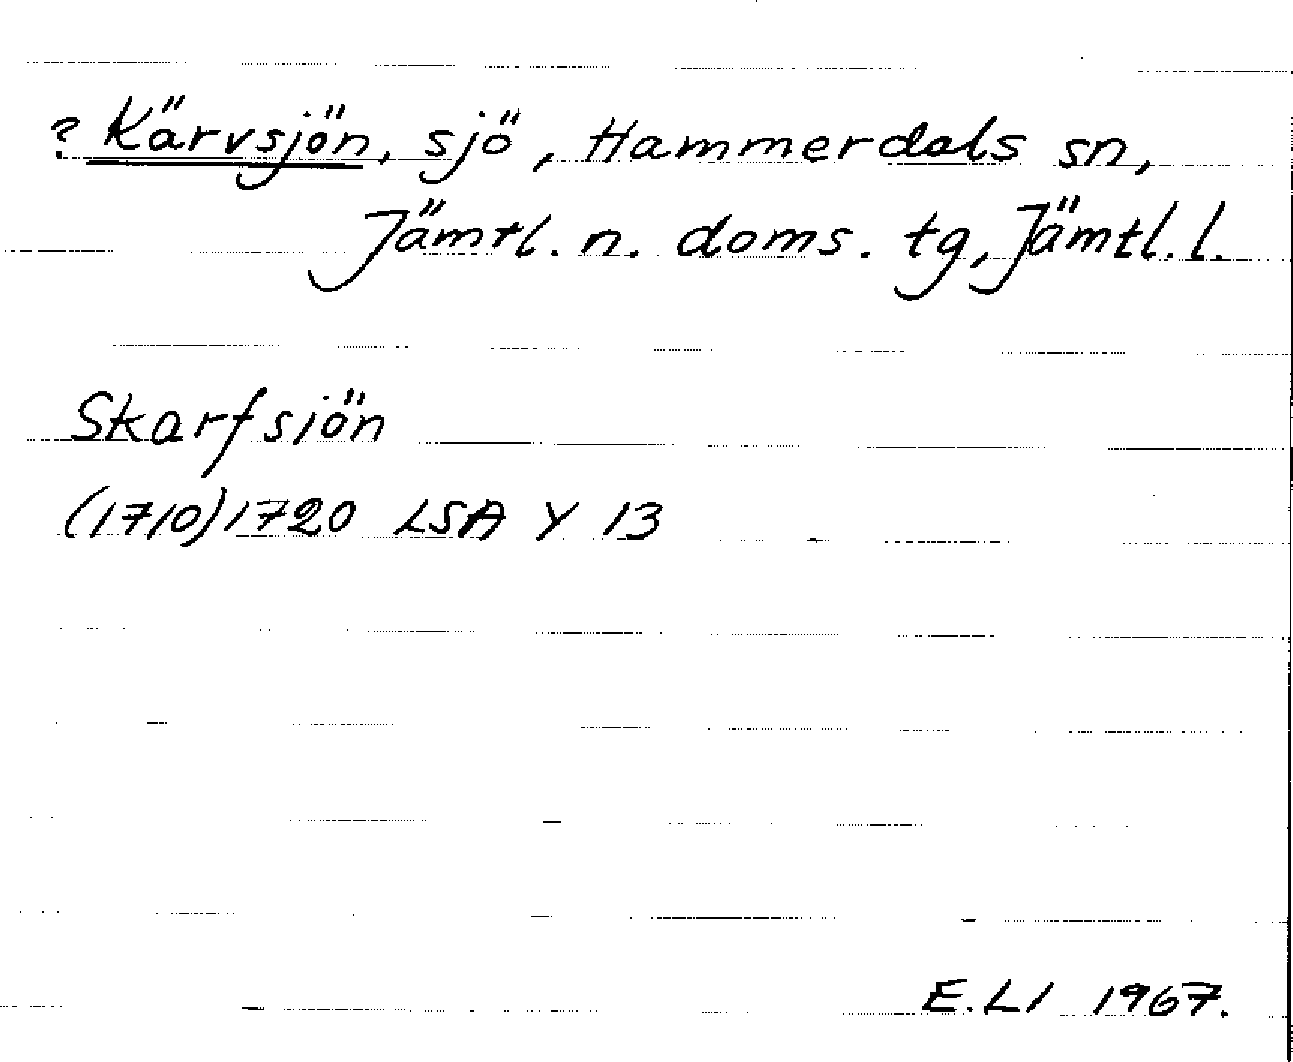 ? Kärvsjön, sjö, Hammerdals sn,
Jämtl. n. doms. tg, Jämtl. l.
Skarfsiön
(1710) 1720 LSA Y 13
E. LI 1967.